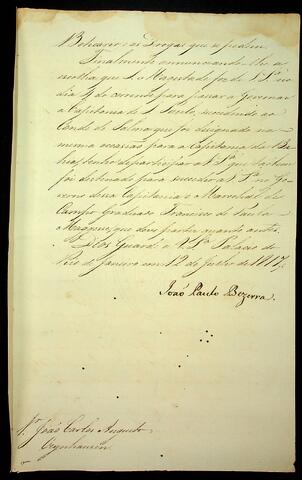 Boticario e as Drogas que se pedem.
Finalmente annunciando-lhe a
escolha que S. Magestade fez de V. Sª no
dia 4 do corrente para passar a Governar
a Capitania de S. Paulo, succedendo ao
Conde de Palma que foi designado na
mesma occasião para a Capitania da Ba-
hia, tenho de participar a V. Sª que
foi destinado para succeder a V. Sª no Go-
verno dessa Capitania o Marechal de
Campo Graduado Francisco de Paula
Magessi, que deve partir quanto antes.
Deos Guarde a V. Sª Palacio do
Rio de Janeiro em 12 de Julho de 1817.
João Paulo Bezerra.
Sr. João Carlos Augusto
Oeynhausen